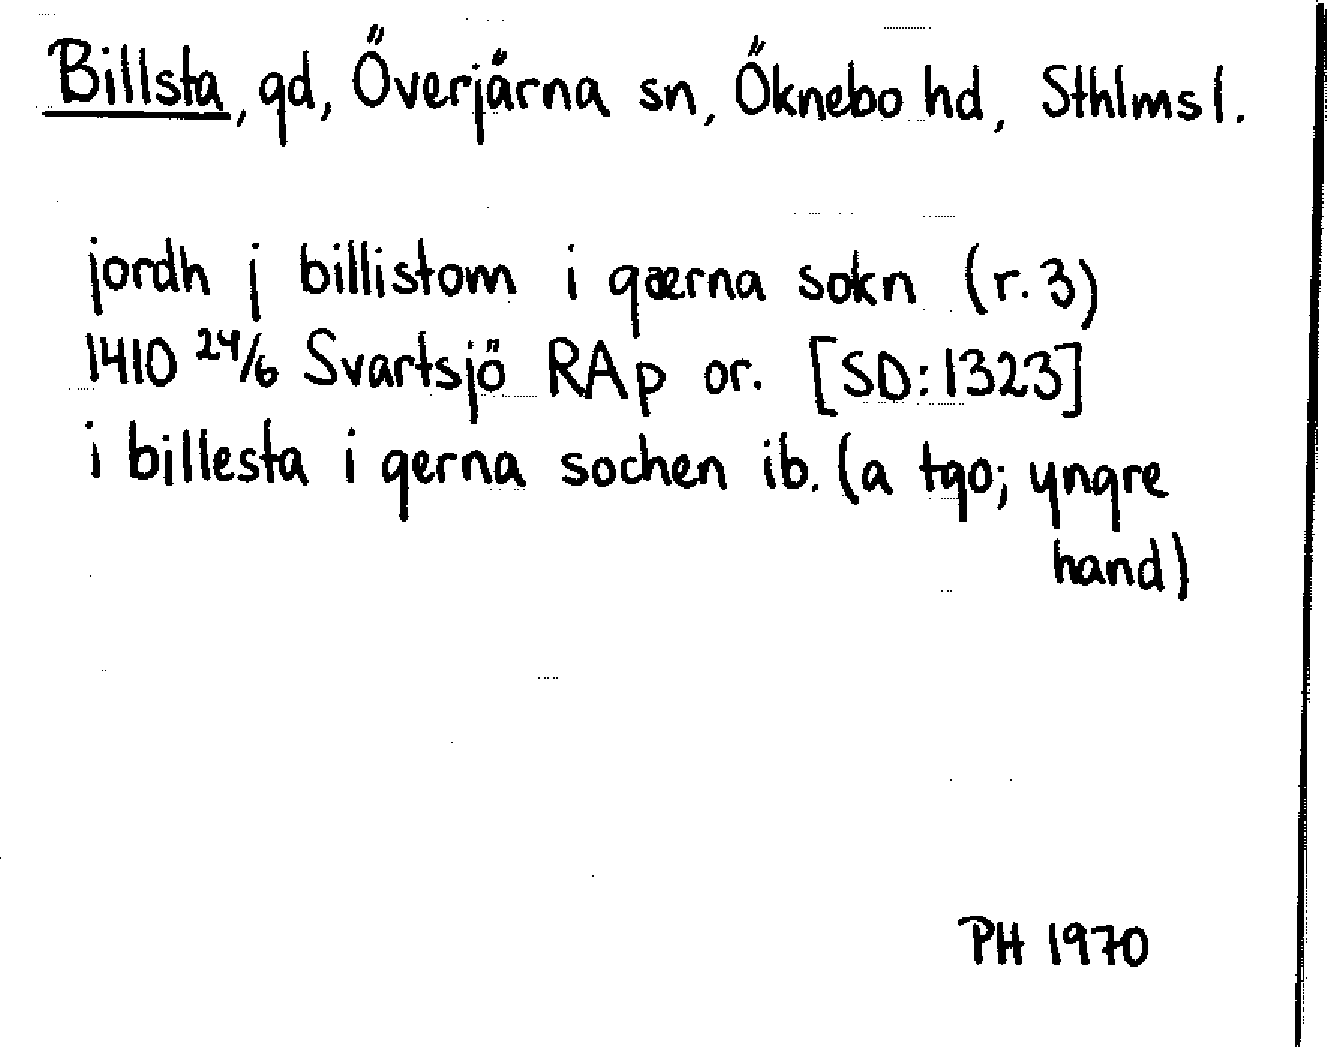 Billsta, gd, Överjärna sn, Öknebo hd, Sthlms l.
jordh j billistom i gærna sokn (r. 3)
1410 24/6 Svartsjö RAp or. [SD: 1323]
i billesta i gerna sochen ib. (a tgo; yngre
hand)
PH 1970